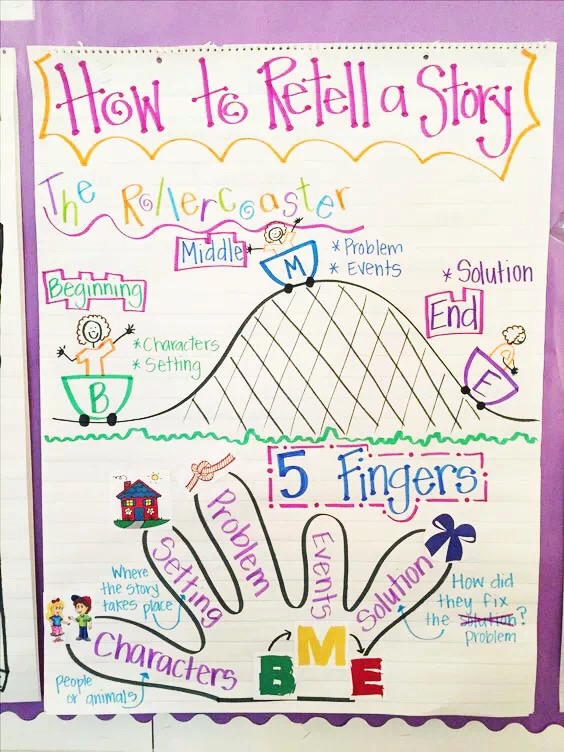 How to Retell a Story
The Rollercoaster
Beginning
B
* Characters
* Setting
Middle
M
* Problem
* Events
* Solution
End
E
5 Fingers
Characters
people
or animals
Setting
Where
the story
takes place
Problem
Events
Solution
How did
they fix
the solution?
problem
B M E